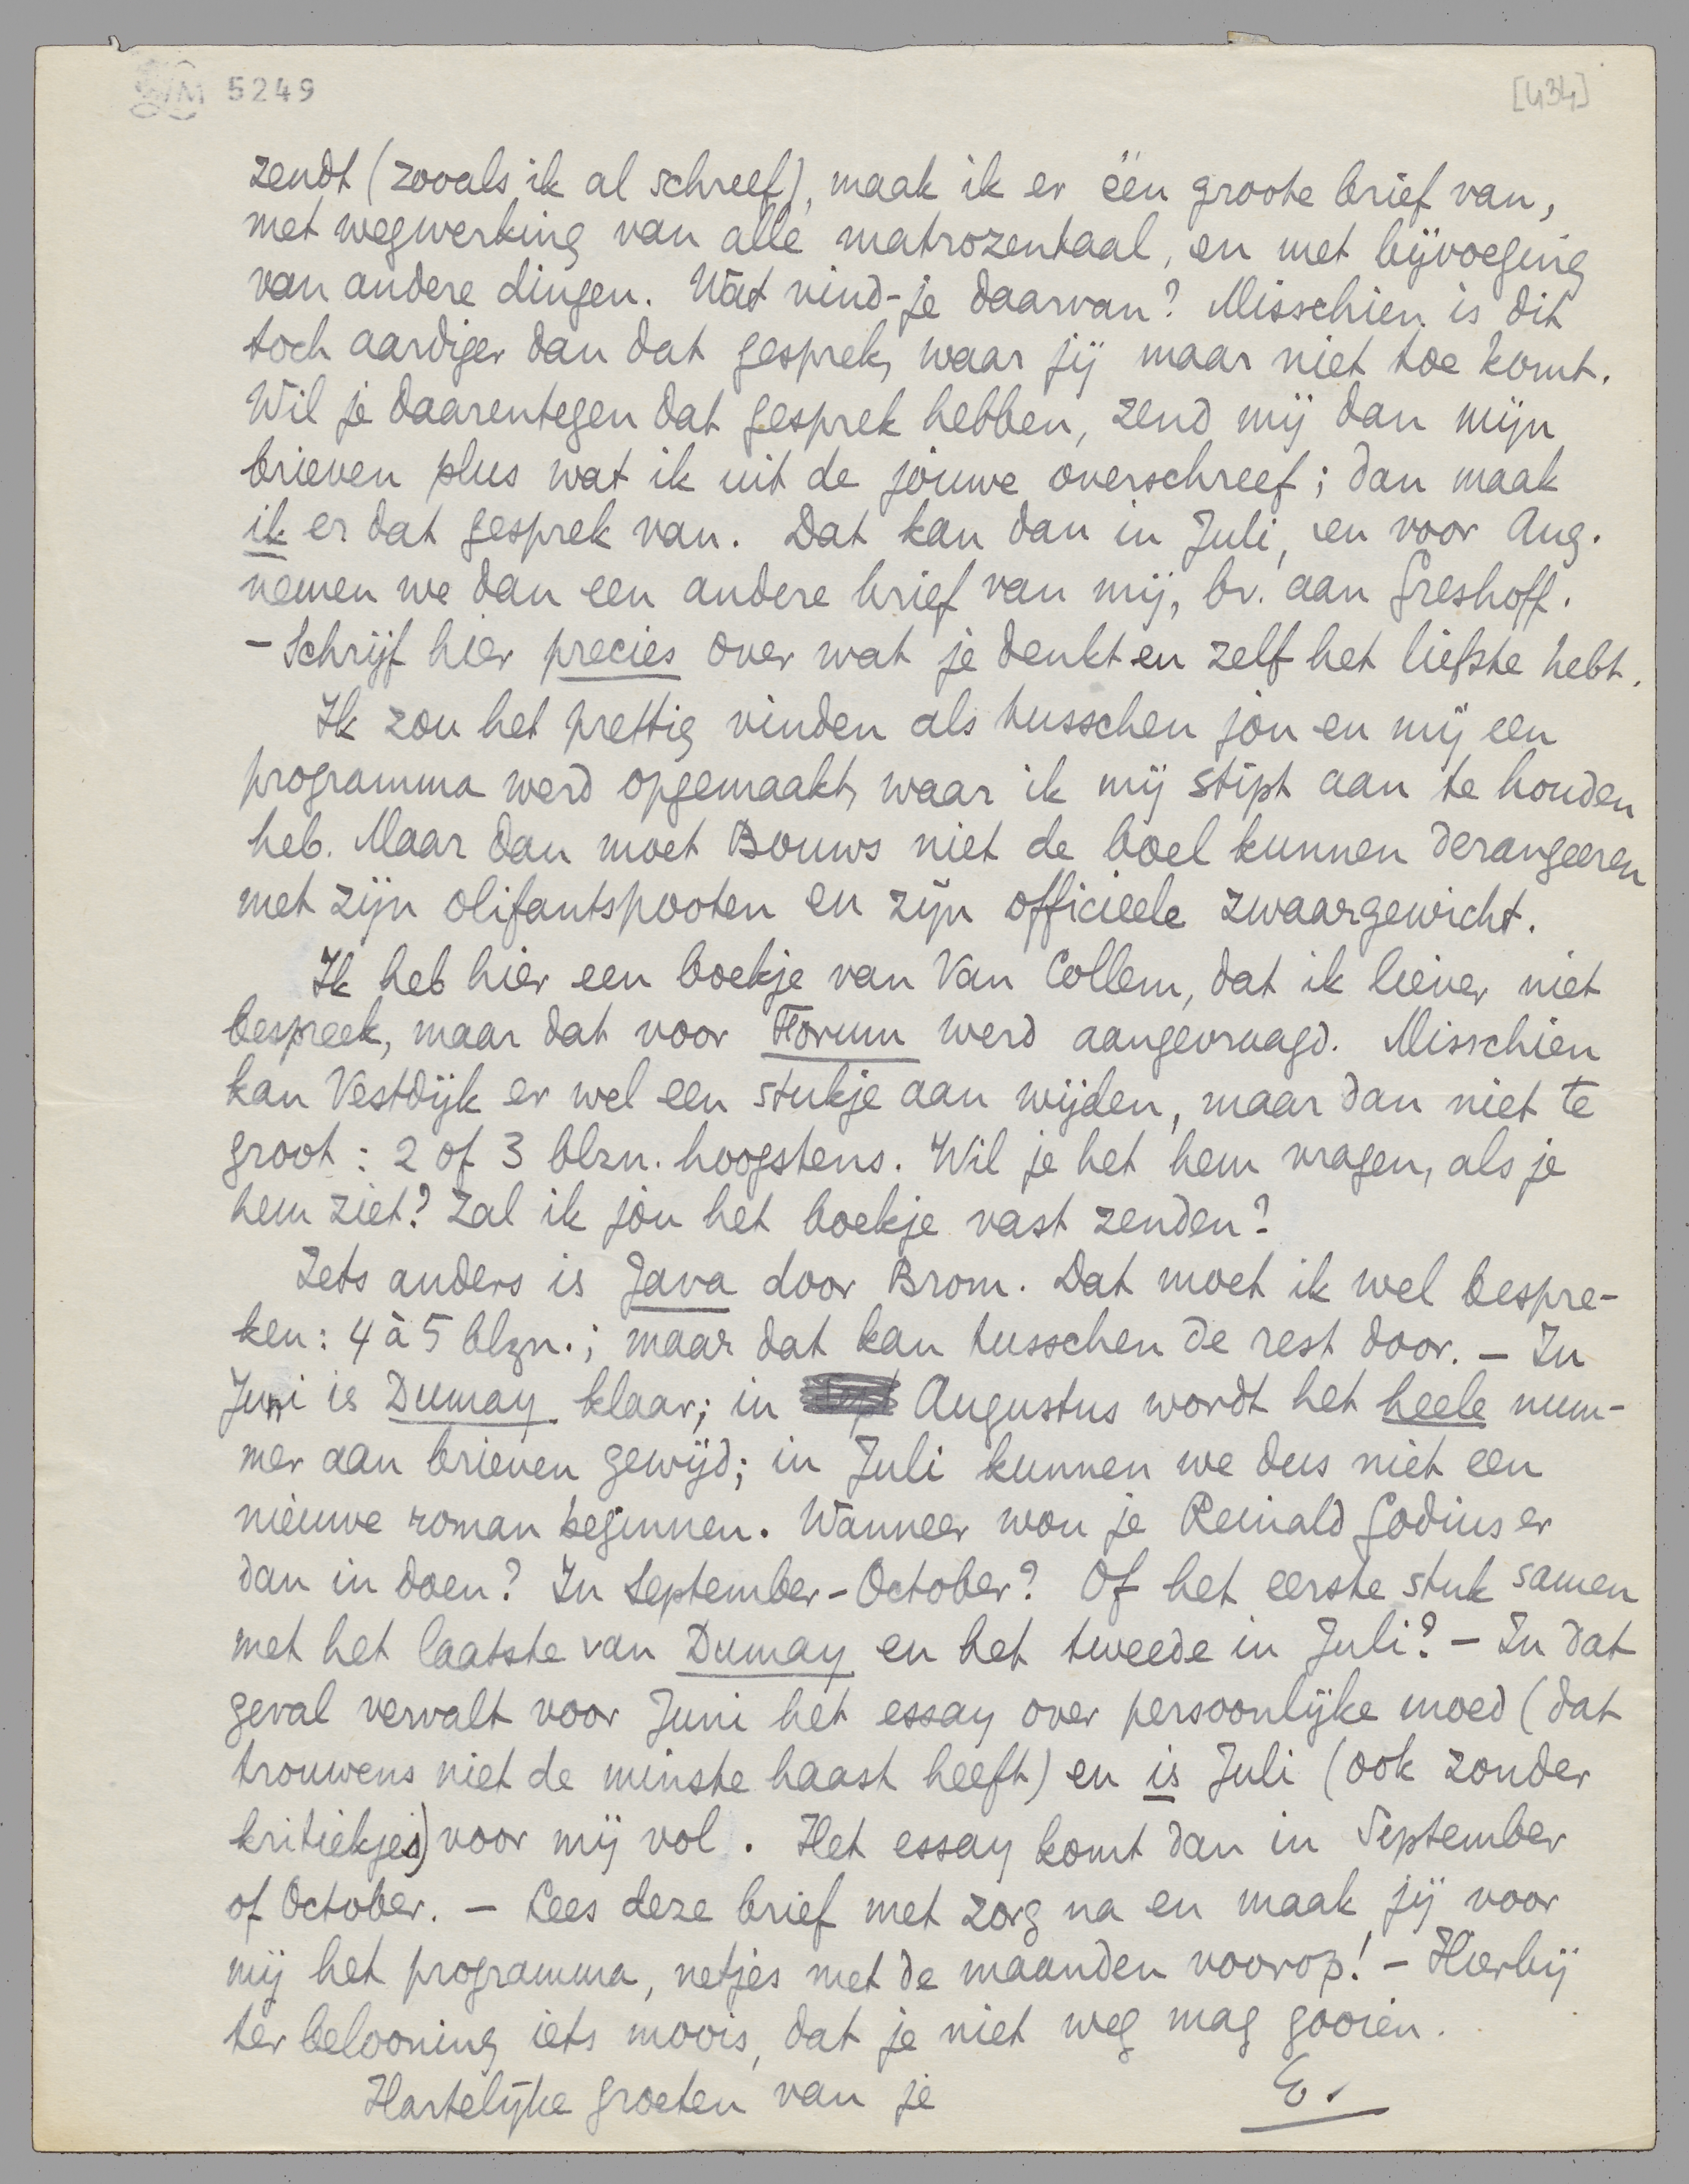 LM 5249
[434]
zendt (zooals ik al schreef), maak ik er één groote brief van,
met wegwerking van alle matrozentaal, en met bijvoeging
van andere dingen. Wat vind-je daarvan? Misschien is dit
toch aardiger dan dat gesprek, waar jij maar niet toe komt.
Wil je daarentegen dat gesprek hebben, zend mij dan mijn
brieven plus wat ik uit de jóuwe overschreef; dan maak
ik er dat gesprek van. Dat kan dan in Juli, en voor Aug.
nemen we dan een andere brief van mij, bv. aan Greshoff.
– Schrijf hier precies over wat je denkt en zelf het liefste hebt.
Ik zou het prettig vinden als tusschen jou en mij een
programma werd opgemaakt, waar ik mij stipt aan te houden
heb. Maar dan moet Bouws niet de boel kunnen derangeeren
met zijn olifantspooten en zijn officieele zwaargewicht.
Ik heb hier een boekje van Van Collem, dat ik liever niet
bespreek, maar dat voor Forum werd aangevraagd. Misschien
kan Vestdijk er wel een stukje aan wijden, maar dan niet te
groot: 2 of 3 blzn. hoogstens. Wil je het hem vragen, als je
hem ziet? Zal ik jóu het boekje vast zenden?
Iets anders is Java door Brom. Dat moet ik wel bespre-
ken: 4 à 5 blzn.; maar dat kan tusschen de rest door. – In
Juni is Dumay klaar; in Augustus wordt het heele num-
mer aan brieven gewijd; in Juli kunnen we dus niet een
nieuwe roman beginnen. Wanneer wou je Reinald Godius er
dan in doen? In September-October? Of het eerste stuk samen
met het laatste van Dumay en het tweede in Juli? – In dat
geval vervalt voor Juni het essay over persoonlijke moed (dat
trouwens niet de minste haast heeft) en is Juli (ook zonder
kritiekjes) voor mij vol. Het essay komt dan in September
of October. – Lees deze brief met zorg na en maak jij voor
mij het programma, netjes met de maanden voorop! – Hierbij
ter belooning iets moois, dat je niet weg mag gooien.
Hartelijke groeten van je
E.